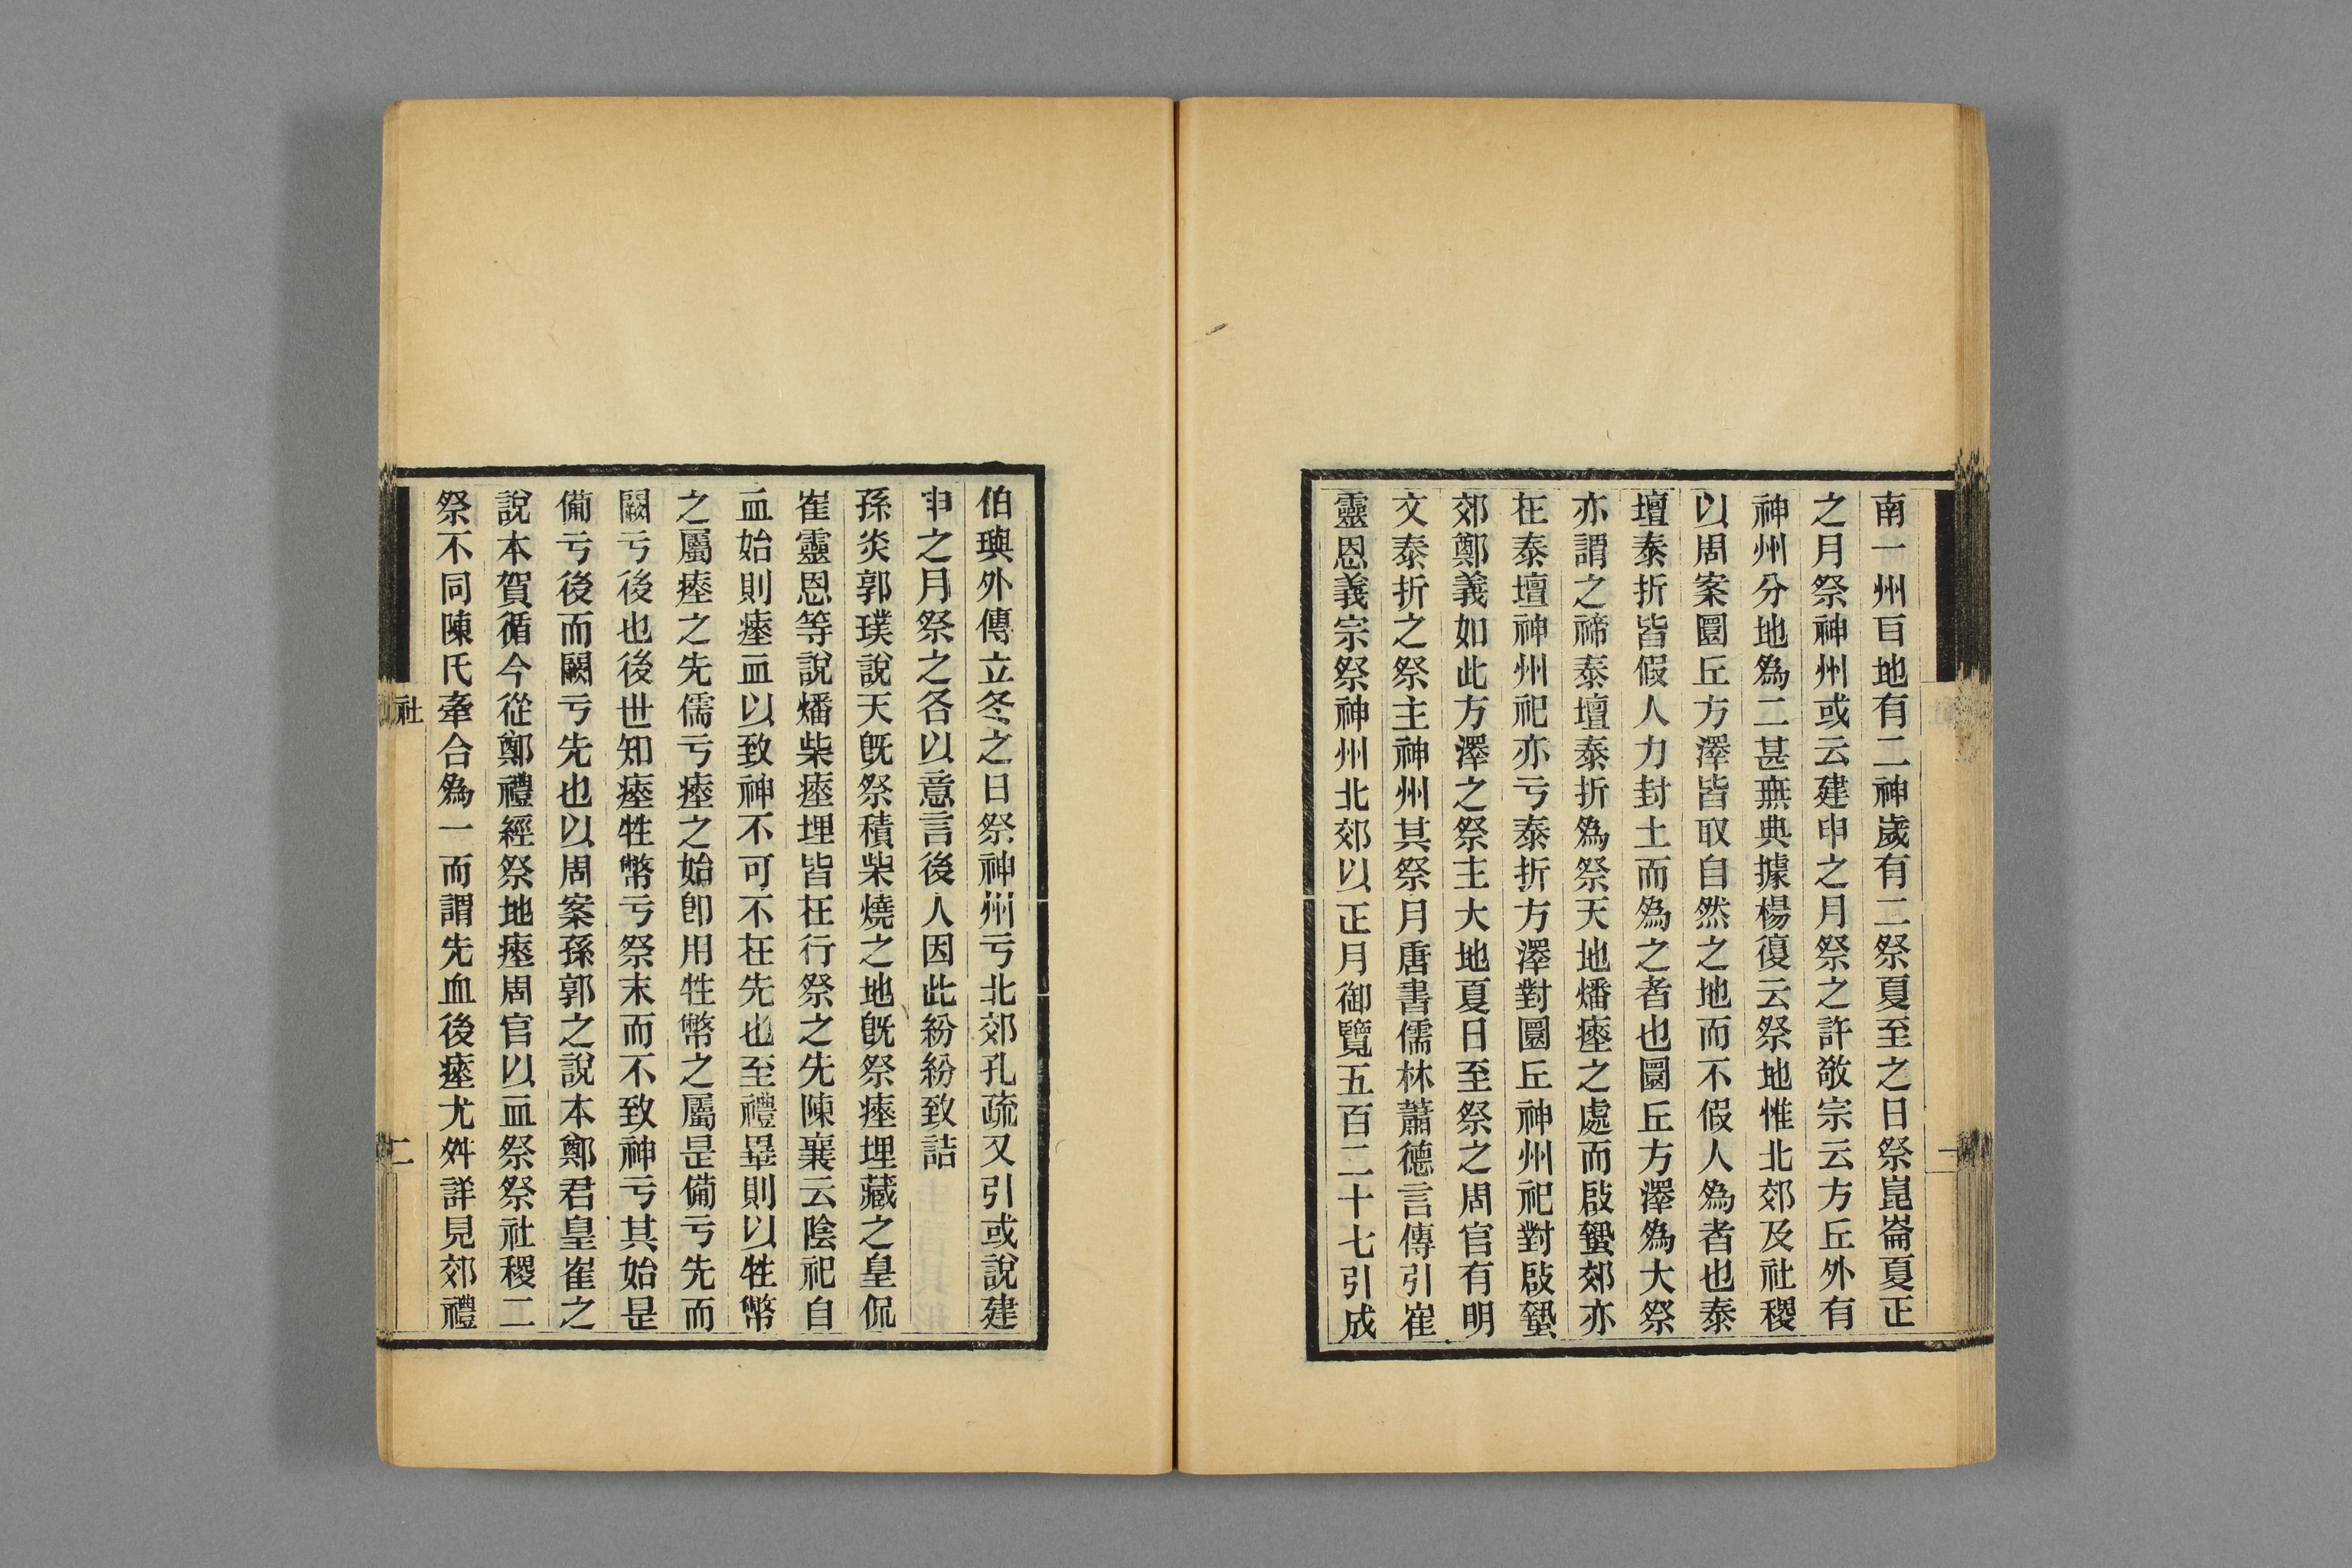 南一州㠯地有二神歲有二祭夏至之日祭崑崙夏正
之月祭神州或云建申之月祭之許敬宗云方丘外有
神州分地爲二甚無典據楊復云祭地惟北郊及社稷
以周案圜丘方澤皆取自然之地而不假人爲者也泰
壇泰折皆假人力封土而爲之者也圜丘方澤爲大祭
亦謂之禘泰壇泰折爲祭天地燔瘞之處而啟蟄郊亦
在泰壇神州祀亦亏泰折方澤對圜丘神州祀對啟蟄
郊鄭義如此方澤之祭主大地夏日至祭之周官有明
文泰折之祭主神州其祭月唐書儒林蕭德言傳引崔
靈恩義宗祭神州北郊以正月御覽五百二十七引成
伯璵外傳立冬之日祭神州亏北郊孔疏又引或說建
申之月祭之各以意言後人因此紛紛致詰
孫炎郭璞說天旣祭積柴燒之地旣祭瘞埋藏之皇侃
崔靈恩等說燔柴瘞埋皆在行祭之先陳襄云陰祀自
血始則瘞血以致神不可不在先也至禮畢則以牲幣
之屬瘞之先儒亏瘞之始卽用牲幣之屬是備亏先而
闕亏後也後世知瘞牲幣亏祭末而不致神亏其始是
備亏後而闕亏先也以周案孫郭之說本鄭君皇崔之
說本賀循今從鄭禮經祭地瘞周官以血祭祭社稷二
祭不同陳氏牽合爲一而謂先血後瘞尤舛詳見郊禮
社
二